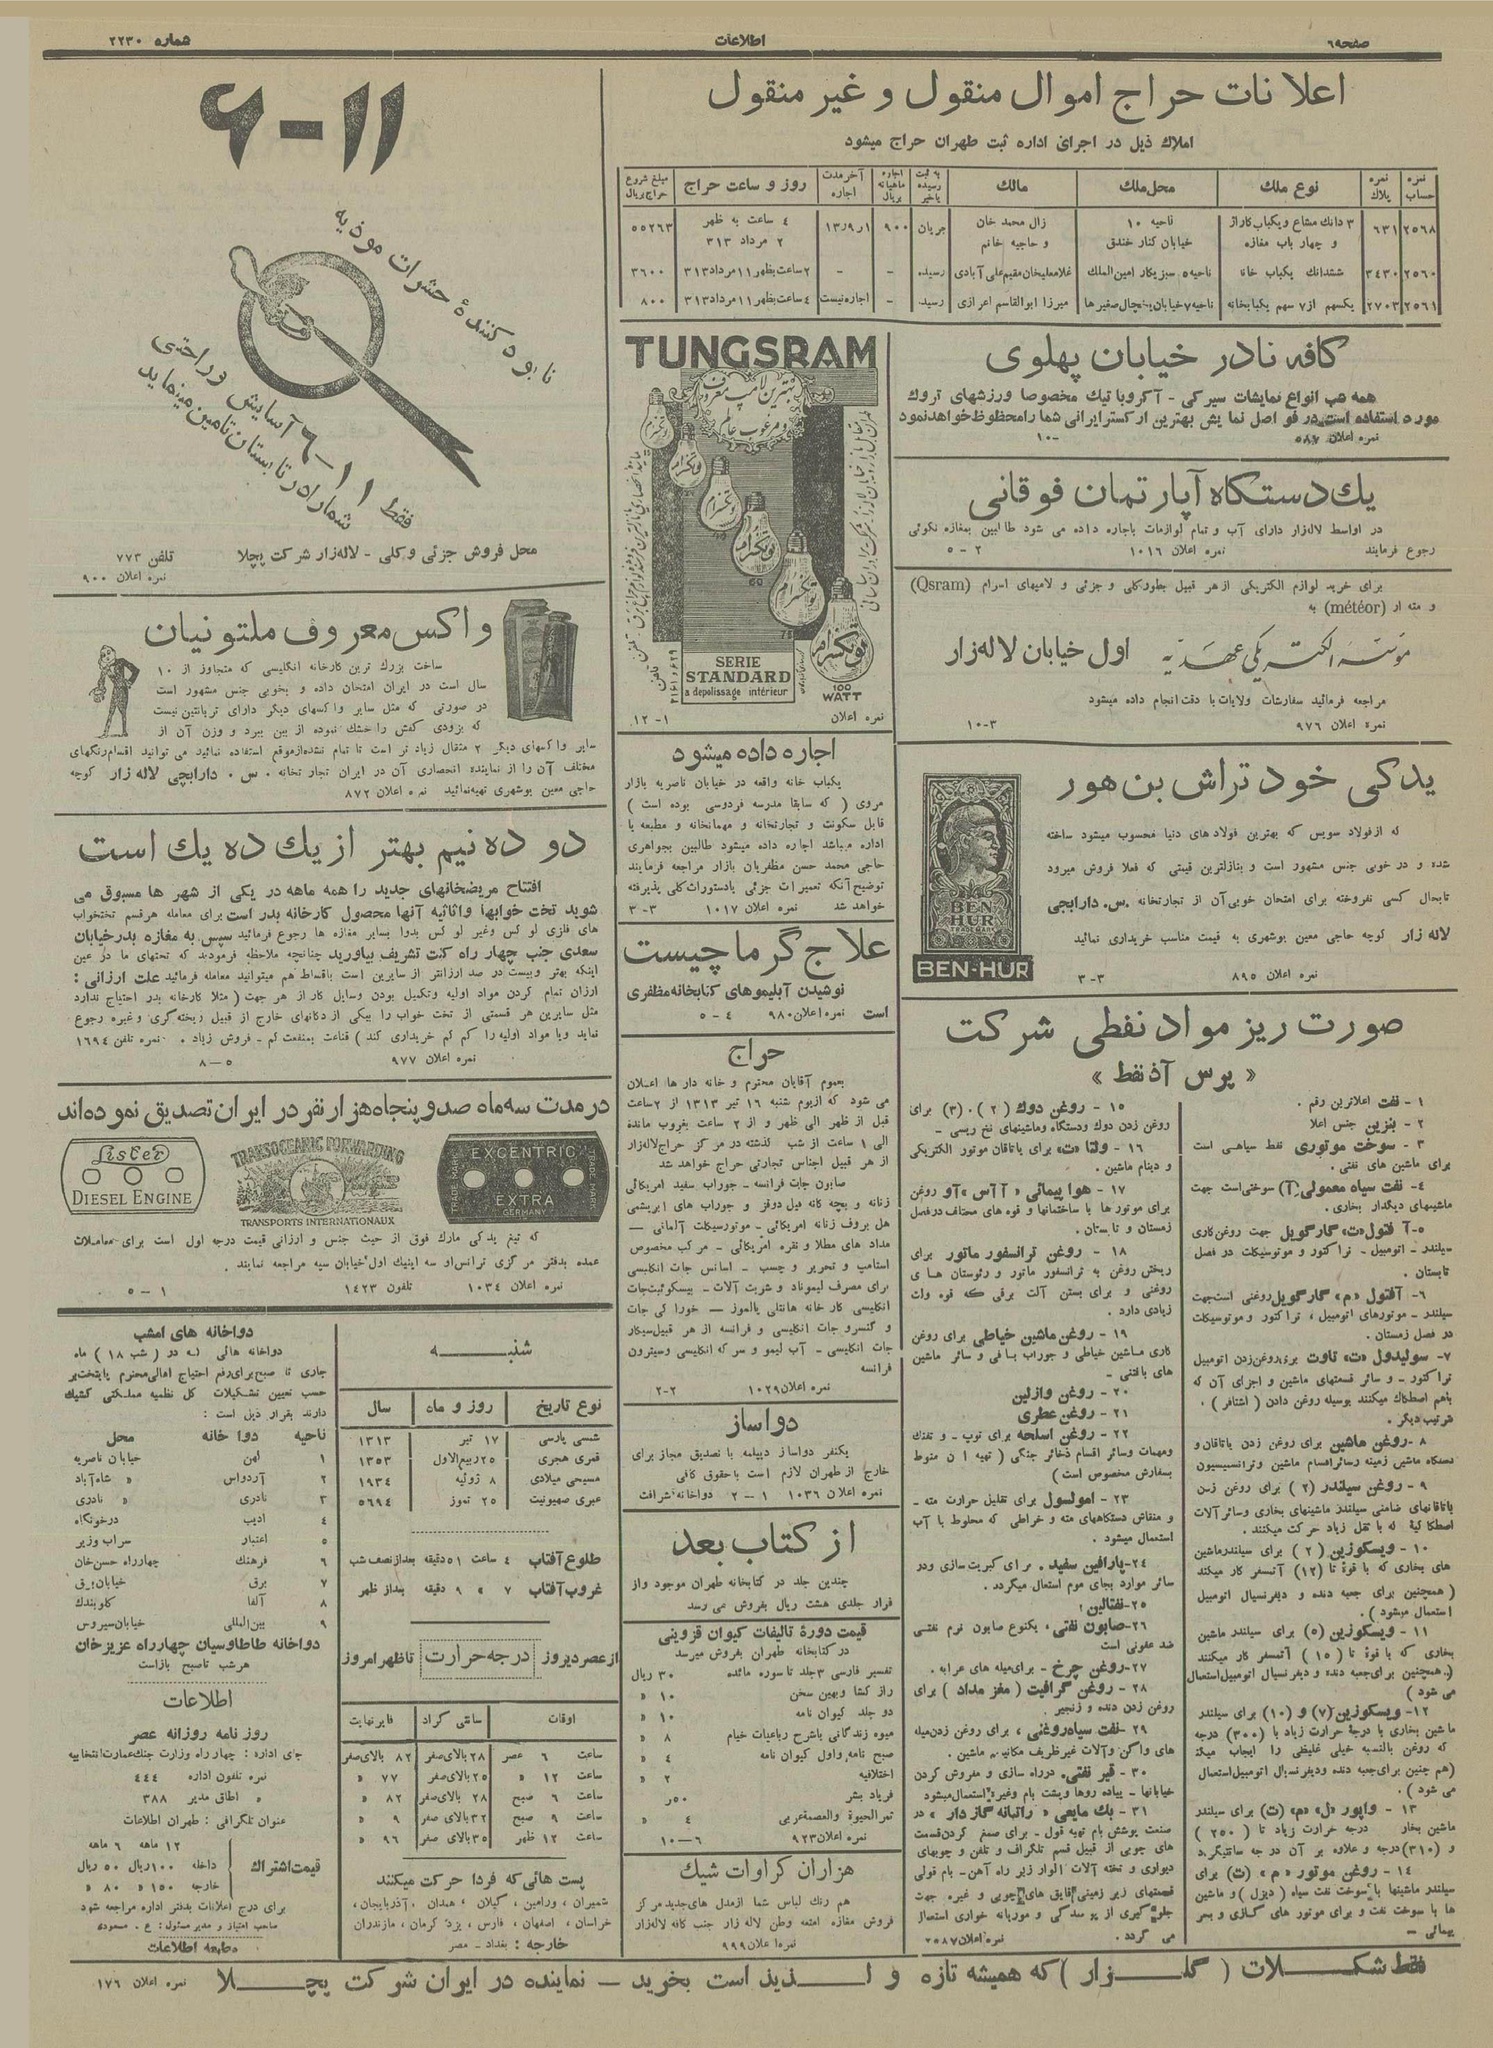 صفحه ۶
اطلاعات
شماره ۲۲۳۰
اعلانات حراج اموال منقول و غیر منقول
املاك ذیل در اجرای اداره ثبت طهران حراج میشود
نمره حساب | نمره پلاك | نوع ملك | محل ملك | مالك | به ثبت رسیده یا خیر | اجاره ماهیانه بریال | آخر مدت اجاره | روز و ساعت حراج | مبلغ شروع حراج بریال
۲۵۶۸ | ۶۳۱ | ۳ دانك مشاع و یکباب کاراژ و چهار باب مغازه | ناحیه ۱۰ خیابان کنار خندق | زال محمد خان و حاجیه خانم | جریان | ۹۰۰ | ۱ر۹ر۱۳ | ٤ ساعت به ظهر ۲ مرداد ۳۱۳ | ۵۵۲۶۳
۲۵۶۰ | ۳٤۳۰ | ششدانك یکباب خانه | ناحیه ۵ سبزیکار امین الملك | غلامعلیخان مقیم علی آبادی | رسیده | - | - | ۲ ساعت بظهر ۱۱ مرداد ۳۱۳ | ۳۶۰۰
۲۵۶۱ | ۲۷۰۳ | یکسهم از ۷ سهم یکبابخانه | ناحیه ۷ خیابان یخچال صغیر ها | میرزا ابوالقاسم اعرازی | رسید. | - | اجاره نیست | ٤ ساعت بظهر ۱۱ مرداد ۳۱۳ | ۸۰۰
کافه نادر خیابان پهلوی
همه شب انواع نمایشات سیرکی - آکروباتیك مخصوصا ورزشهای تروك
مورد استفاده است. در فواصل نمایش بهترین ارکستر ایرانی شما را محظوظ خواهد نمود
نمره اعلان ۵۸۷ ۱۰-
یك دستگاه آپارتمان فوقانی
در اواسط لاله‌زار دارای آب و تمام لوازمات باجاره داده می شود طالبین بمغازه نکوئی
رجوع فرمایند نمره اعلان ۱۰۱۶ ۲ - ۵
برای خرید لوازم الکتریکی از هر قبیل بطور کلی و جزئی و لامپهای اسرام (Qsram)
و مته ار (météor) به
مؤسسه الکتریکی عهدیه اول خیابان لاله‌زار
مراجعه فرمائید سفارشات ولایات با دقت انجام داده میشود
نمره اعلان ۹۷۶ ۳-۱۰
یدکی خود تراش بن هور
که از فولاد سویس که بهترین فولاد های دنیا محسوب میشود ساخته
شده و در خوبی جنس مشهور است و بنازلترین قیمتی که فعلا فروش میرود
تابحال کسی نفروخته برای امتحان خوبی آن از تجارتخانه .س. دارابجی
لاله زار کوچه حاجی معین بوشهری به قیمت مناسب خریداری نمائید
نمره اعلان ۸۹۵ ۳-۳
BEN HUR
TRADE MARK
BEN-HUR
صورت ریز مواد نفطی شرکت
« پرس آذ نفط »
۱ - نفت اعلاترین رقم .
۲ - بنزین جنس اعلا
۳ - سوخت موتوری نفط سیاهی است
برای ماشین های نفتی .
٤- نفت سیاه معمولی (آ) سوختی است جهت
ماشینهای دیگدار بخاری .
۵- آ فتول «ت» گارگویل جهت روغن کاری
سیلندر - اتومبیل - تراکتور و موتوسیکلت در فصل
تابستان .
۶- آفتول «م» گارگویل روغنی است جهت
سیلندر - موتورهای اتومبیل ، تراکتور و موتوسیکلت
در فصل زمستان .
۷- سولیدول «ت» تاوت برای روغن زدن اتومبیل
تراکتور - و سائر قسمتهای ماشین و اجزای آن که
باهم اصطكاك میکنند بوسیله روغن دادن ( اشتافر ) .
ترتیب دیگر .
۸ - روغن ماشین برای روغن زدن یاتاقان و
دستگاه ماشین زمینه و سائر اقسام ماشین و ترانسیسیون
۹ - روغن سیلندر (۲) برای روغن زدن
یاتاقانهای ضامنی سیلندر ماشینهای بخاری و سائر آلات
اصطکاکیه که با ثقل زیاد حرکت میکنند .
۱۰ - ویسکوزین ( ۲ ) برای سیلندر ماشین
های بخاری که با قوۀ تا (۱۲) آتمسفر کار میکند
( همچنین برای جعبه دنده و دیفرنسیال اتومبیل
استعمال میشود ) .
۱۱ - ویسکوزین (۵) برای سیلندر ماشین
بخاری که با قوۀ تا ( ۱۵ ) آتمسفر کار میکنند
(. همچنین برای جعبه دنده و دیفرنسیال اتومبیل استعمال
می شود )
۱۲- ویسکوزین (۷) و (۱۰) برای سیلندر
ماشین بخاری با درجۀ حرارت زیاد با (۳۰۰) درجه
که روغن بالنسبه خیلی غلیظی را ایجاب میکند
(هم چنین برای جعبه دنده و دیفرنسیال اتومبیل استعمال
می شود ) .
۱۳ - واپور «ل» «م» (ت) برای سیلندر
ماشین بخار درجه حرارت زیاد تا ( ۲۵۰ )
و (۳۱۰) درجه و علاوه بر آن درجه سانتیگرد
۱٤ - روغن موتور «م» (ت) برای
سیلندر ماشینها با سوخت نفت سیاه ( دیزل ) و ماشین
ها با سوخت نفت و برای موتور های گازی و بحر
پیمائی -
۱۵ - روغن دوك ( ۲ ) . (۳) برای
روغن زدن دوك و دستگاه و ماشینهای نخ ریسی -
۱۶ - ولتا «ت» برای یاتاقان موتور الکتریکی
و دینام ماشین .
۱۷ - هوا پیمائی « آآس » آو روغن
برای موتور ها با ساختمانها و قوه های مختلف در فصل
زمستان و تابستان .
۱۸ - روغن ترانسفور ماتور برای
ریختن روغن به ترانسفور ماتور و رئوستان های
روغنی و برای بستن آلت برقی که قوه ولت
زیادی دارد .
۱۹ - روغن ماشین خیاطی برای روغن
کاری ماشین خیاطی و جوراب بافی و سائر ماشین
های بافتنی -
۲۰ - روغن وازلین
۲۱ - روغن عطری
۲۲ - روغن اسلحه برای توپ - و تفنك
ومهمات وسائر اقسام ذخائر جنگی ( تهیه ان منوط
بسفارش مخصوص است )
۲۳ - امولسول برای تقلیل حرارت مته -
و منقاش دستگاههای مته و خراطی که مخلوط با آب
استعمال میشود .
۲٤- پارافین سفید . برای کبریت سازی ودر
سائر موارد بجای موم استعمال میگردد .
۲۵- نفتالین ؛
۲۶- صابون نفتی ، یکنوع صابون نرم نفتی
ضد عفونی است
۲۷ - روغن چرخ - برای میله های عرابه .
۲۸ - روغن گرافیت ( مغز مداد ) برای
روغن زدن دنده و زنجیر
۲۹ - نفت سیاه روغنی ، برای روغن زدن میله
های واگن وآلات غیر ظریف مکانیه ماشین .
۳۰ - قیر نفتی . درراه سازی و مفروش کردن
خیابانها - پیاده روها وپشت بام وغیره استعمال میشود
۳۱ - یك مایعی « راتبانه گاز دار » در
صنعت پوشش بام تهیه قول - برای صمغ کردن قسمت
های چوبی از قبیل قسم تلگراف و تلفن و چوبهای
دیواری و تخته آلات الوار زیر راه آهن - بام قولی
قسمتهای زیر زمینی قایق های چوبی و غیره جهت
جلوگیری از پوسدگی و موریانه خواری استعمال
می گردد . نمره اعلان ۲۵۸۷
TUNGSRAM
بهترین لامپ معروف
و مرغوب عالم
تونگزرام
SERIE
STANDARD
a depolissage intérieur
100
WATT
نمره اعلان ۱- ۱۲
اجاره داده میشود
یکباب خانه واقعه در خیابان ناصریه بازار
مروی ( که سابقا مدرسه فردوسی بوده است )
قابل سکونت و تجارتخانه و مهمانخانه و مطبعه یا
اداره میباشد اجاره داده میشود طالبین بجواهری
حاجی محمد حسن مظفریان بازار مراجعه فرمایند
توضیح آنکه تعمیرات جزئی یا دستورات کلی پذیرفته
خواهد شد نمره اعلان ۱۰۱۷ ۳-۳
علاج گرما چیست
نوشیدن آبلیموهای کتابخانه مظفری
است نمره اعلان ۹۸۰ ٤ - ۵
حراج
بعموم آقایان محترم و خانه دار ها اعلان
می شود که از یوم شنبه ۱۶ تیر ۱۳۱۳ از ۲ ساعت
قبل از ظهر الی ظهر و از ۲ ساعت بغروب مانده
الی ۱ ساعت از شب گذشته در مرکز حراج لاله‌زار
از هر قبیل اجناس تجارتی حراج خواهد شد
صابون جات فرانسه - جوراب سفید امریکائی
زنانه و بچه گانه فیل دوفز و جوراب های ابریشمی
هل بروف زنانه امریکائی - موتورسیکلت آلمانی -
مداد های مطلا و نقره امریکائی - مرکب مخصوص
استامپ و تحریر و چسب - اسانس جات انگلیسی
برای مصرف لیموناد و شربت آلات - بیسکوئیت‌جات
انگلیسی کارخانه هانتلی پالموز - خوراکی جات
و کنسرو جات انگلیسی و فرانسه از هر قبیل سیکار
جات انگلیسی - آب لیمو و سرکه انگلیسی وسیترون
فرانسه
نمره اعلان ۱۰۲۹ ۲-۲
دواساز
یکنفر دواساز دیپلمه با تصدیق مجاز برای
خارج از طهران لازم است با حقوق کافی
نمره اعلان ۱۰۳۶ ۱ - ۲ دواخانه شرافت
از کتاب بعد
چندین جلد در کتابخانه طهران موجود واز
قرار جلدی هشت ریال بفروش می رسد
قیمت دورۀ تالیفات کیوان قزوینی
در کتابخانه طهران بفروش میرسد
تفسیر فارسی ۳ جلد تا سوره مائده ۳۰ ریال
راز کشا و بهین سخن ۱۰ »
دو جلد کیوان نامه ۱۰ »
میوه زندگانی باشرح رباعیات خیام ۸ »
صبح نامه واول کیوان نامه ٤ »
اختلافیه ۲ »
فریاد بشر ۵۰ر
ثمر الحیوة والعصمة عربی ٤ »
نمره اعلان ۹۲۳ ۶-۱۰
هزاران کراوات شیك
هم رنك لباس شما از مدل های جدید مرکز
فروش مغازه امتعه وطن لاله زار جنب کافه لاله‌زار
نمره اعلان ۹۹۹
۱۱-۶
نابود کنندۀ حشرات موذیه
فقط ۱۱-۶ آسایش و راحتی
شما را در تابستان تامین مینماید
محل فروش جزئی و کلی - لاله زار شرکت پچلا تلفن ۷۷۳
نمره اعلان ۹۰۰
واکس معروف ملتونیان
ساخت بزرك ترین کارخانه انگلیسی که متجاوز از ۱۰
سال است در ایران امتحان داده و بخوبی جنس مشهور است
در صورتی که مثل سایر واکسهای دیگر دارای تربانتین نیست
که بزودی کفش را خشك نموده از بین ببرد و وزن آن از
سایر واکسهای دیگر ۲ مثقال زیاد تر است تا تمام نشده از موقع استفاده نمائید می توانید اقسام رنگهای
مختلف آن را از نماینده انحصاری آن در ایران تجارتخانه .س. دارابجی لاله زار کوچه
حاجی معین بوشهری تهیه نمائید نمره اعلان ۸۷۲
دو ده نیم بهتر از یك ده یك است
افتتاح مریضخانهای جدید را همه ماهه در یکی از شهر ها مسبوق می
شوید تخت خوابها و اثاثیه آنها محصول کارخانه بدر است برای معامله هر قسم تختخواب
های فلزی لوکس وغیر لوکس بدوا بسایر مغازه ها رجوع فرمائید سپس به مغازه بدر خیابان
سعدی جنب چهار راه کنت تشریف بیاورید چنانچه ملاحظه فرمودید که تختهای ما در عین
اینکه بهتر وبیست در صد ارزانتر از سایرین است باقساط هم میتوانید معامله فرمائید علت ارزانی :
ارزان تمام کردن مواد اولیه وتکمیل بودن وسایل کار از هر جهت ( مثلا کارخانه بدر احتیاج ندارد
مثل سایرین هر قسمتی از تخت خواب را بیکی از دکانهای خارج از قبیل ریخته گری و غیره رجوع
نماید ویا مواد اولیه را کم کم خریداری کند ) قناعت بمنفعت کم - فروش زیاد . نمره تلفن ۱۶۹٤
نمره اعلان ۹۷۷ ۵-۸
در مدت سه ماه صدو پنجاه هزار نفر در ایران تصدیق نموده‌اند
Lister
DIESEL ENGINE
TRANSOCEANIC FORWARDING
TRANSPORTS INTERNATIONAUX
TRADE MARK
EXCENTRIC
EXTRA
GERMANY
TRADE MARK
که تیغ یدکی مارك فوق از حیث جنس و ارزانی قیمت درجه اول است برای معاملات
عمده بدفتر مرکزی ترانس‌او سه اینیك اول خیابان سپه مراجعه نمایند .
نمره اعلان ۱۰۳٤ تلفون ۱٤۲۳ ۱ - ۵
شنبه
نوع تاریخ | روز و ماه | سال
شمسی پارسی | ۱۷ تیر | ۱۳۱۳
قمری هجری | ۲۵ ربیع الاول | ۱۳۵۳
مسیحی میلادی | ۸ ژوئیه | ۱۹۳٤
عبری صهیونیت | ۲۵ تموز | ۵۶۹٤
طلوع آفتاب ٤ ساعت ۵۱ دقیقه بعد از نصف شب
غروب آفتاب ۷ » ۹ دقیقه بعداز ظهر
از عصر دیروز درجه حرارت تا ظهر امروز
اوقات | سانتی گراد | فارنهایت
ساعت ۶ عصر | ۲۸ بالای صفر | ۸۲ بالای صفر
ساعت ۱۲ » | ۲۵ بالای صفر | ۷۷ »
ساعت ۶ صبح | ۲۸ بالای صفر | ۸۲ »
ساعت ۹ صبح | ۳۲ بالای صفر | ۹ »
ساعت ۱۲ ظهر | ۳۵ بالای صفر | ۹۶ »
پست هائی که فردا حرکت میکنند
شمیران ، ورامین ، گیلان ، همدان ، آذربایجان ،
خراسان ، اصفهان ، فارس ، یزد کرمان ، مازندران
خارجه : بغداد - مصر
دواخانه های امشب
دواخانه هائی که در ( شب ۱۸ ) ماه
جاری تا صبح برای رفع احتیاج اهالی محترم پایتخت بر
حسب تعیین تشکیلات کل نظمیه مملکتی کشیك
دارند بقرار ذیل است :
ناحیه دوا خانه محل
۱ اهن خیابان ناصریه
۲ آردواس » شاه آباد
۳ نادری » نادری
٤ ادیب درخونگاه
۵ اعتبار سراب وزیر
۶ فرهنك چهارراه حسن خان
۷ برق خیابان برق
۸ آلفا کلوبندك
۹ بین المللی خیابان سیروس
دواخانه طاطاوسیان چهارراه عزیز خان
هرشب تا صبح باز است
اطلاعات
روز نامه روزانه عصر
جای اداره : چهار راه وزارت جنك عمارت انتخابیه
نمره تلفون اداره ٤٤٤
» اطاق مدیر ۳۸۸
عنوان تلگرافی : طهران اطلاعات
۱۲ ماهه ۶ ماهه
قیمت اشتراك داخله ۱۰۰ ریال ۵۰ ریال
خارجه ۱۵۰ » ۸۰ »
برای درج اعلانات بدفتر اداره مراجعه شود
صاحب امتیاز و مدیر مسئول : ع . مسعودی
مطبعه اطلاعات
فقط شکلات ( گلزار ) که همیشه تازه و لذیذ است بخرید - نماینده در ایران شرکت پچلا نمره اعلان ۱۷۶